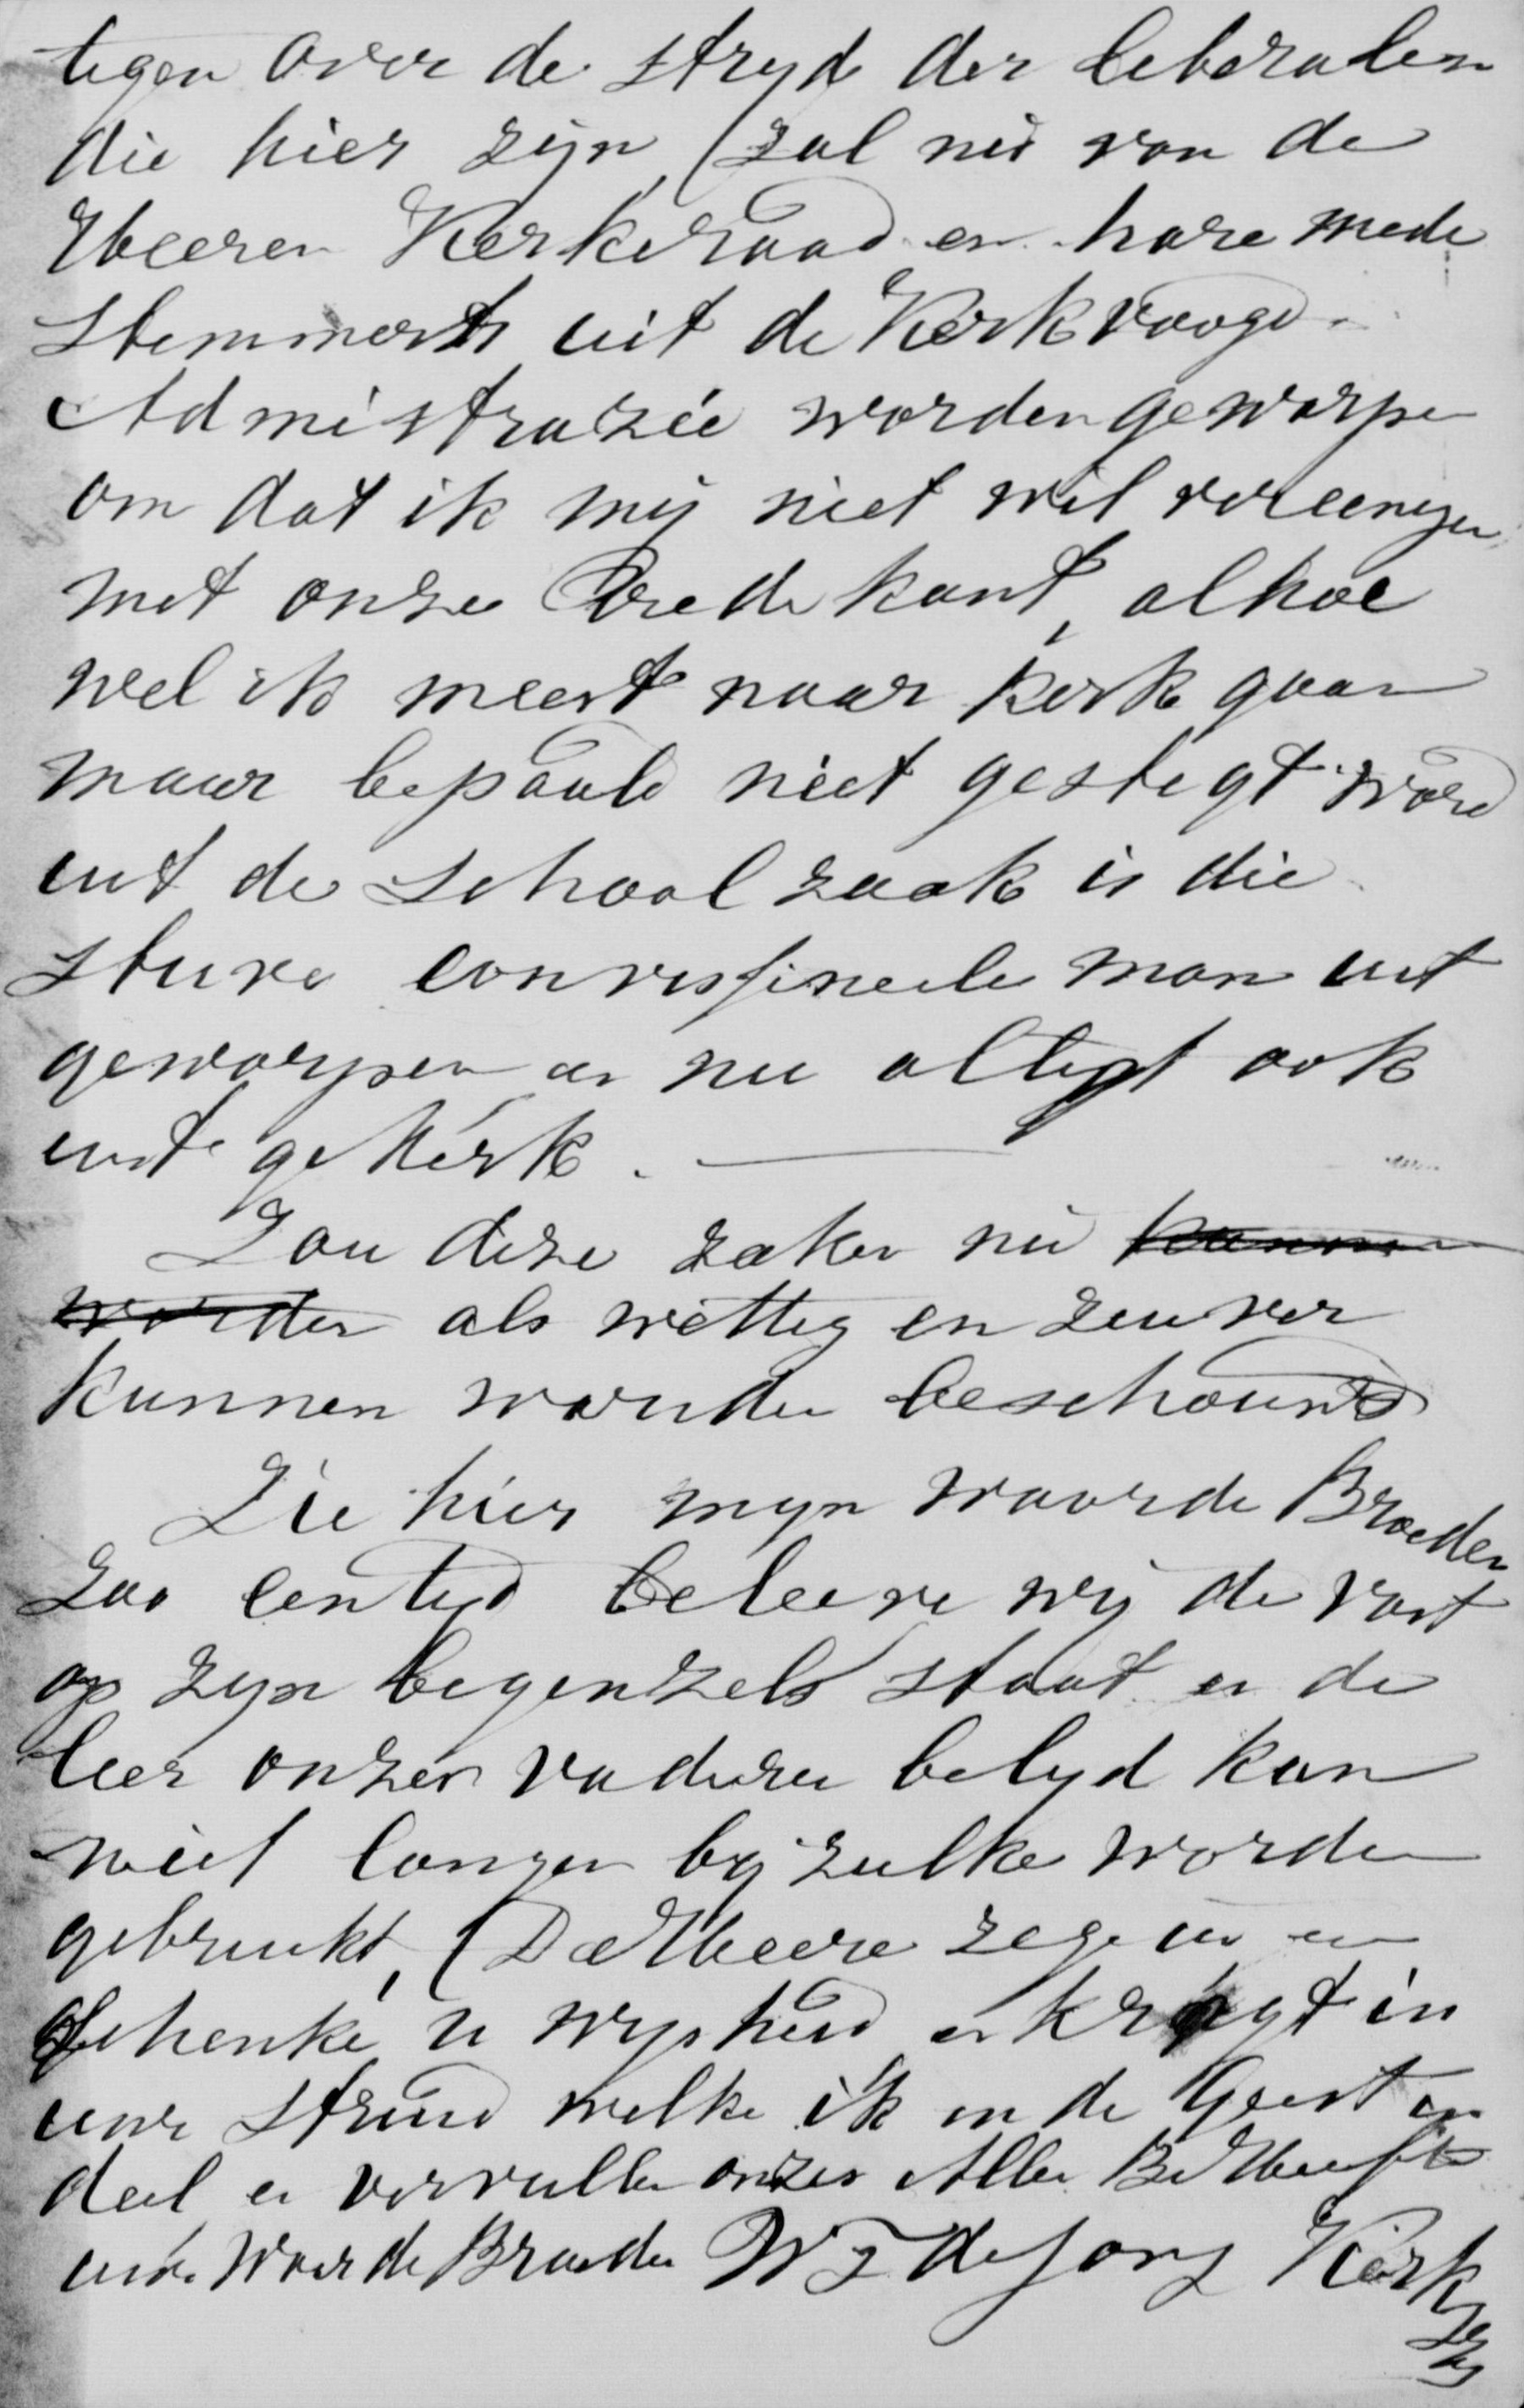 tegen over de stryd der leberalen
die hier zijn, (zal nu van de
Heeren Kerkeraad en hare mede
stemmers uit de Kerkvoogd
Admistrazie worden geworpen
om dat ik mij niet wil vereenigen
met onze Predekant, alhoe
wel ik meest naar kerk gaan
maar bepaald niet gestegt word
uit de School zaak is die
sture confessineele man uit
geworpen en nu altigt ook
uit ge kerk.
Zou deze zaken nu kunnen
worden als wettig en zeuver
kunnen worden beschouwd
Zie hier myn waarde Broeder
zoo een tyd beleeve wij de vast
op zyn begenzels staat en de
leer onzer vaderen belyd kan
niet langer by zulke worden
gebruikt, (De Heere zege u en
schenke u wysheid en kragt in
uwe struid welke ik in de Geest in
deel en vervulle onzer Alle Behoeften
uwe Waarde Broeder W J de Jong Kerk